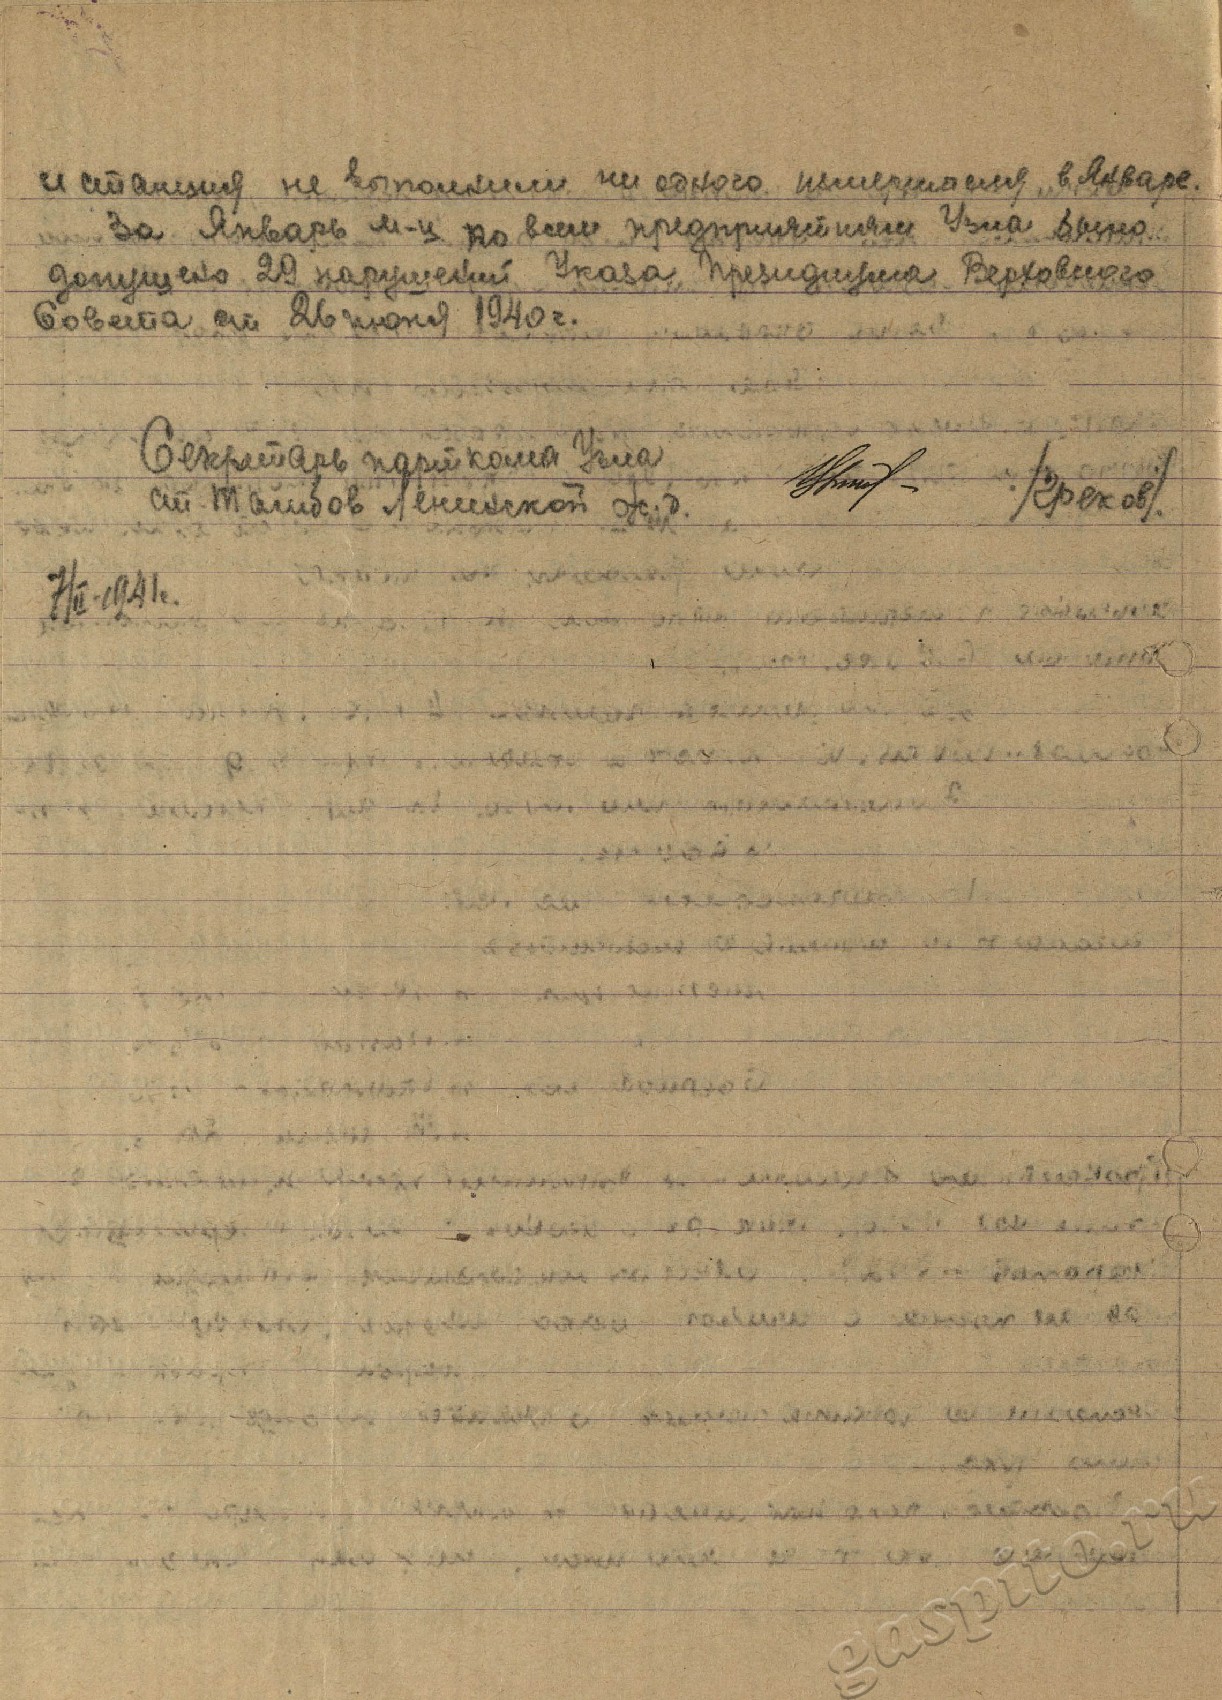 и станция не выполнили ни одного измерителя в Январе.
За Январь м-ц по всем предприятиям Узла было
допущено 29 нарушений Указа Президиума Верховного
Совета от 26 июня 1940 г.
Секретарь парткома Узла
ст. Тамбов Ленинской ж.д.
/Крехов/.
7/II-1941г.
gaspito.ru